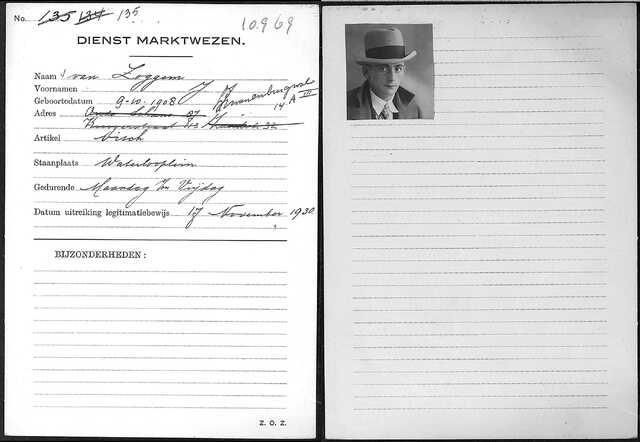 No. 135 134 135
10969
DIENST MARKTWEZEN.
Naam van Loggem
Voornamen J
Geboortedatum 9-10-1908
Zwanenburgwal
14 A III
Adres Oude Schans
32
Artikel Visch
Staanplaats Waterlooplein
Gedurende Maandag t/m Vrijdag
Datum uitreiking legitimatiebewijs 17 November 1930
BIJZONDERHEDEN:
Z. O. Z.